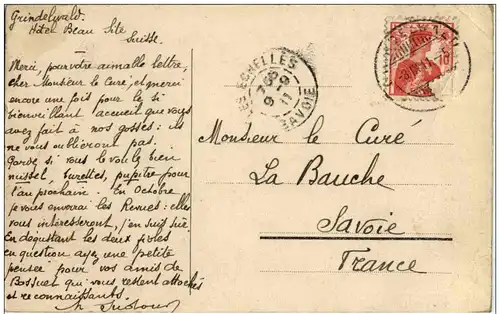 Grindelwald.
Hôtel Beau Site
Suisse.
Merci, pour votre aimable lettre,
cher Monsieur le Curé, et merci
encore une fois pour le si
bienveillant accueil que vous
avez fait à nos gosses: ils ne
vous oublieront pas.
Gardez si vous le voulez bien
missel, burettes, pupitre pour
l'an prochain. En Octobre
je vous enverrai les Revues: elles
vous intéresseront, j'en suis sûr.
En dégustant les deux fioles
en question ayez une petite
pensée pour vos amis de
Bossuet qui vous restent attachés
et reconnaissants.
ECHELLES
SAVOIE
10
Monsieur le Curé
La Bauche
Savoie
France